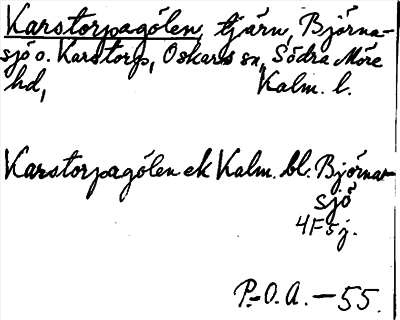 Karstorpagölen, tjärn, Björna-
sjö o. Karstorp, Oskars sn, Södra Möre
hd, Kalm. l.
Karstorpagölen ek Kalm. bl. Björna-
sjö
4F5j.
P.-O.A. - 55.